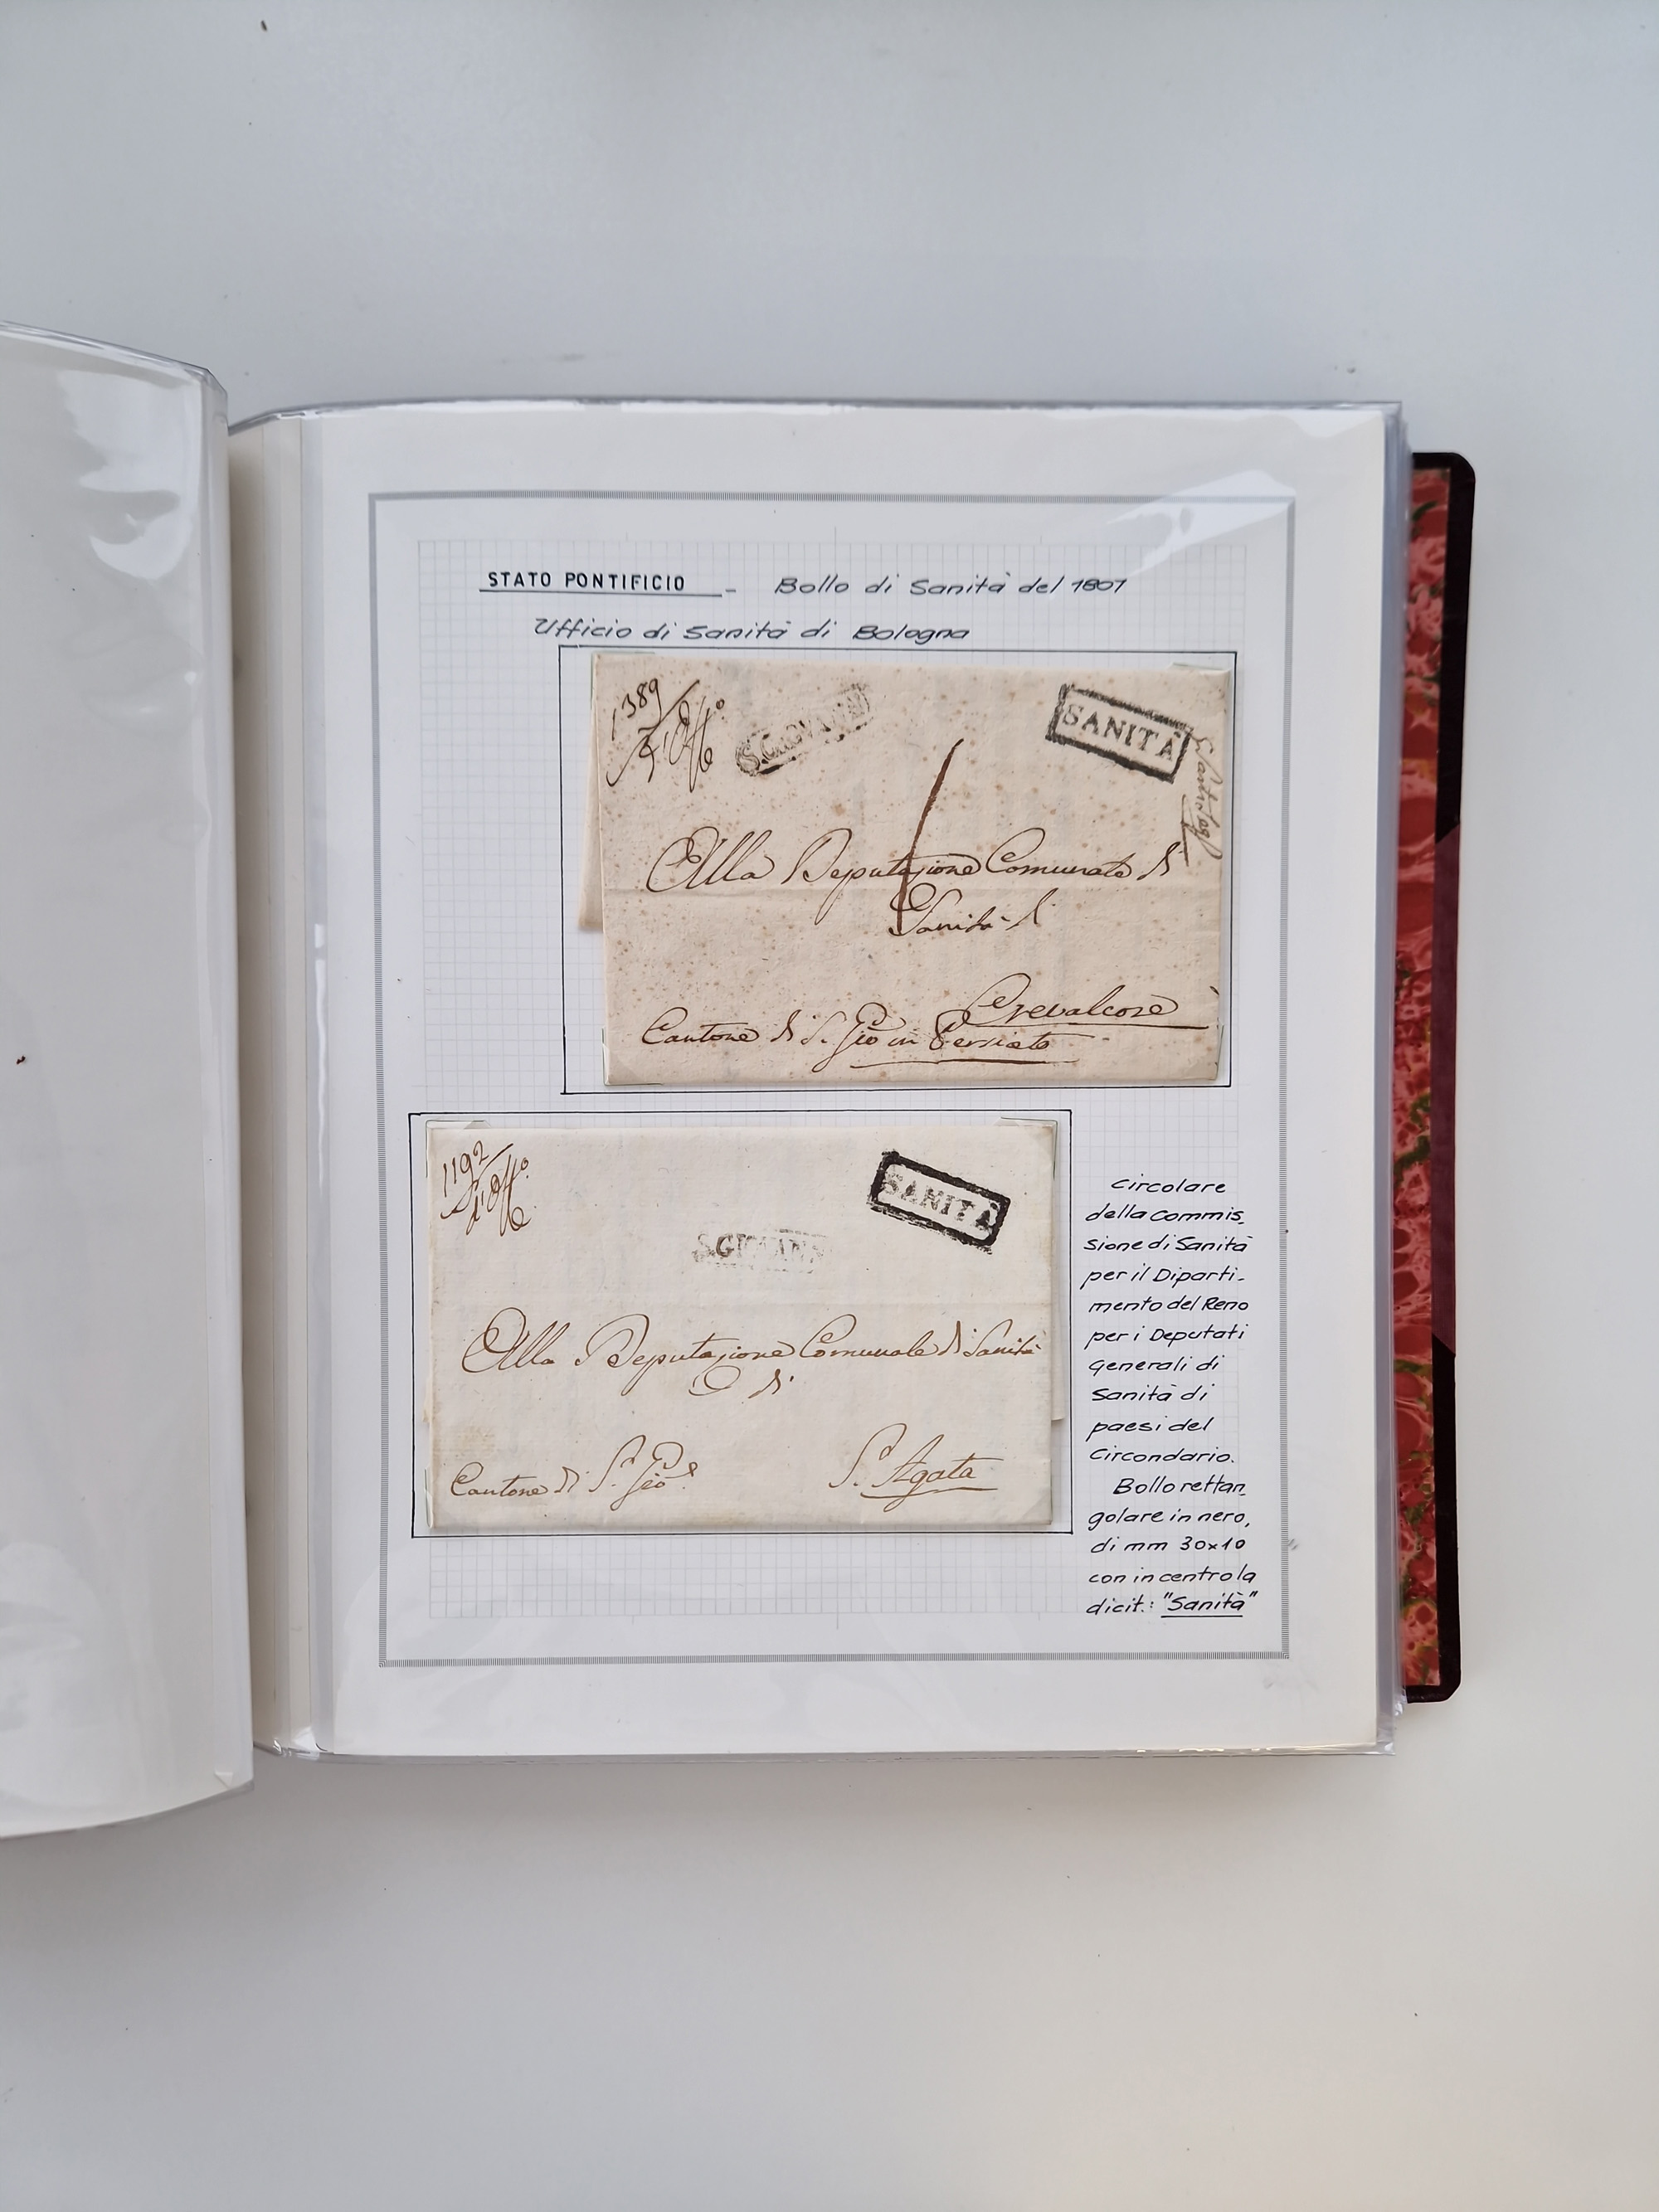 STATO PONTIFICIO - Bollo di Sanità del 1801
Ufficio di Sanità di Bologna
1389
S. GIOVANNI
SANITÀ
Alla Deputazione Comunale di
Sanità di
Crevalcore
Cantone di S. Gio in Persiceto
1192
d'Uff.o
SANITÀ
S. GIOVANNI
Alla Deputazione Comunale di Sanità
di
Cantone di S. Gio
S. Agata
Circolare
della Commis_
sione di Sanità
per il Diparti_
mento del Reno
per i Deputati
Generali di
Sanità di
paesi del
Circondario.
Bollo rettan_
golare in nero,
di mm 30x10
con in centro la
dicit.: "Sanità"